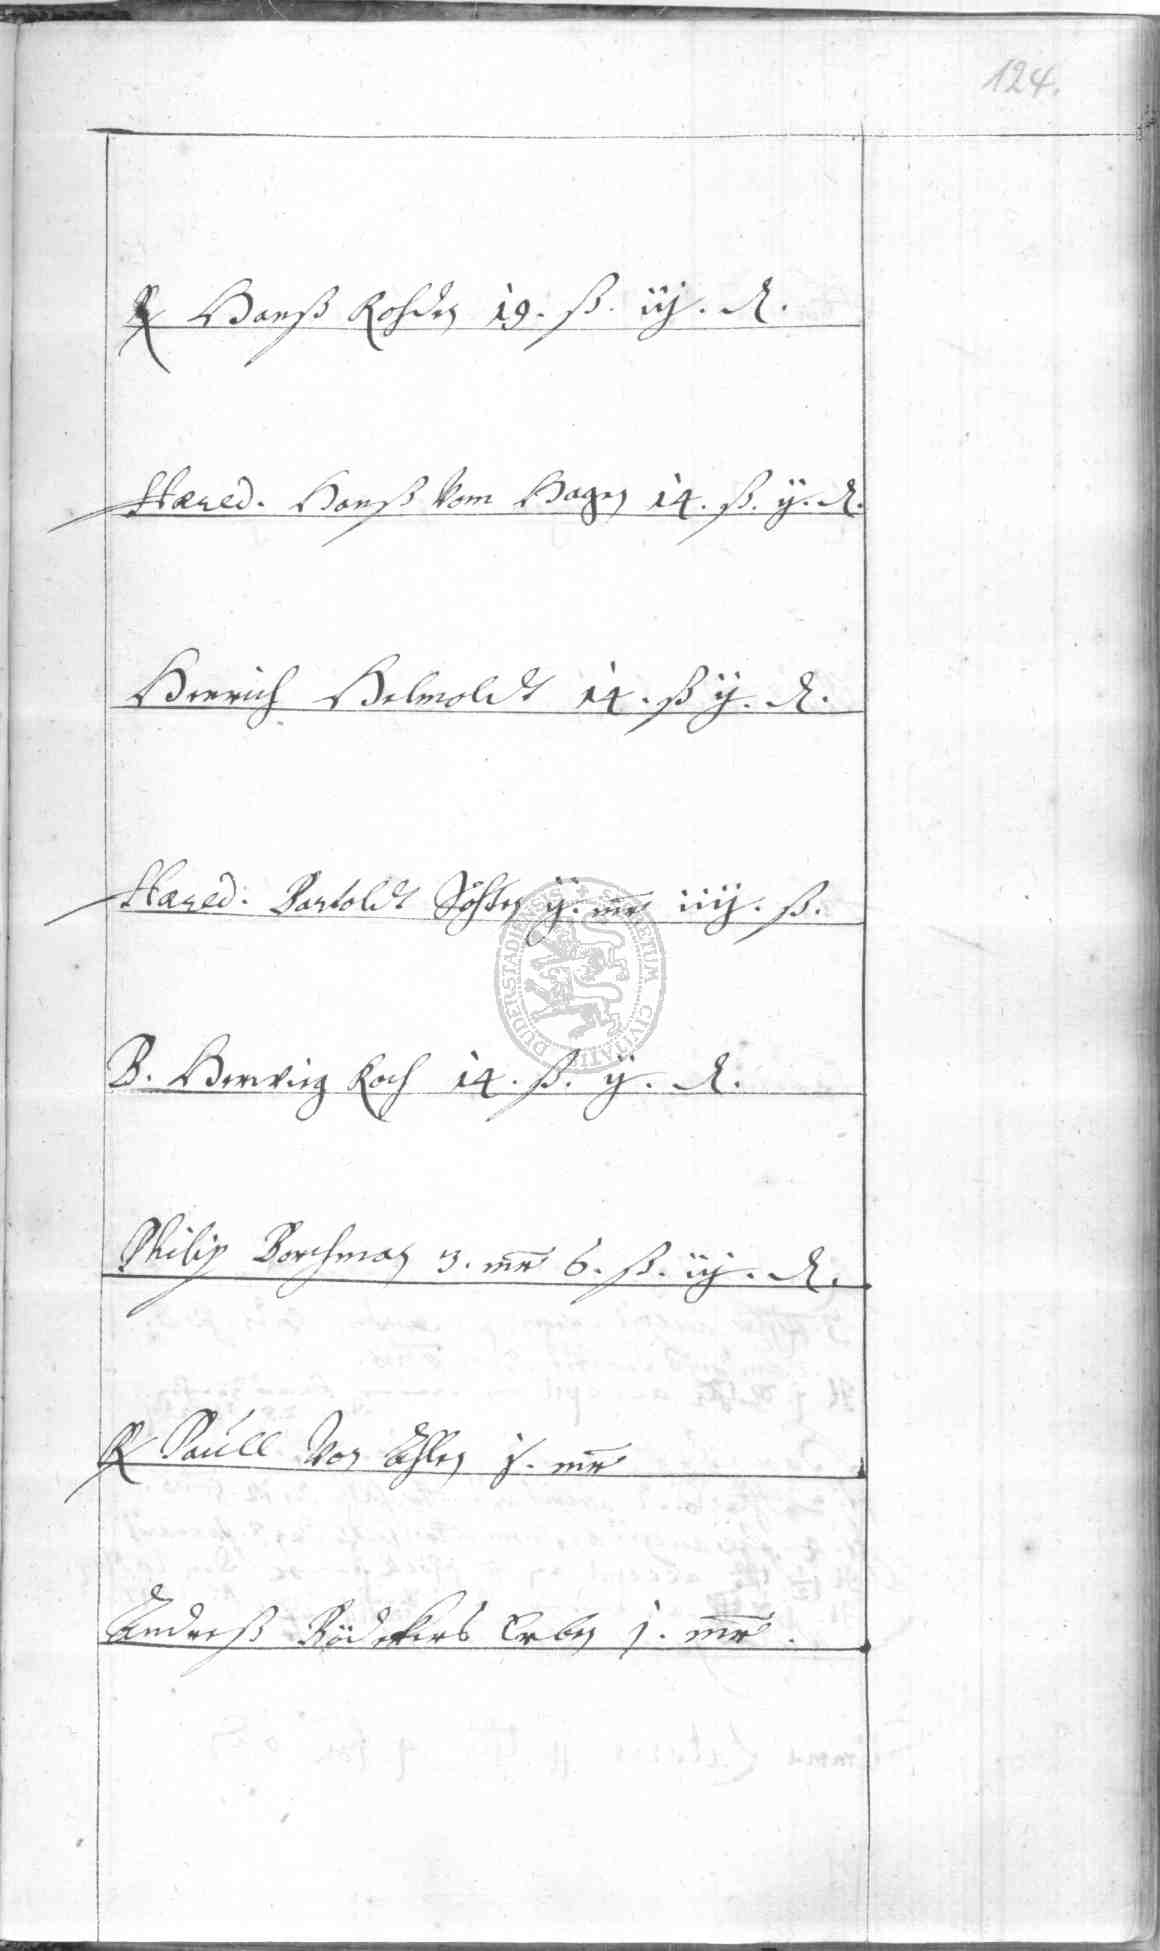 124.
R Hanß Rohden 19. ß. iij. d.
Hæred. Hanß Vom Hagen 14. ß. ij. d.
Henrich Helmoldt 14. ß ij. d.
Hæred. Bartoldt ij. mr iiij. ß.
B. Hartwig Koch 14. ß. ij. d.
Philip Borchman 3. mr 6. ß. iij. d.
R Paull Von Uhlen j. mr
Andreß Bödekers Erben j. mr.
SECRETUM CIVITATIS DUDERSTADIENSIS